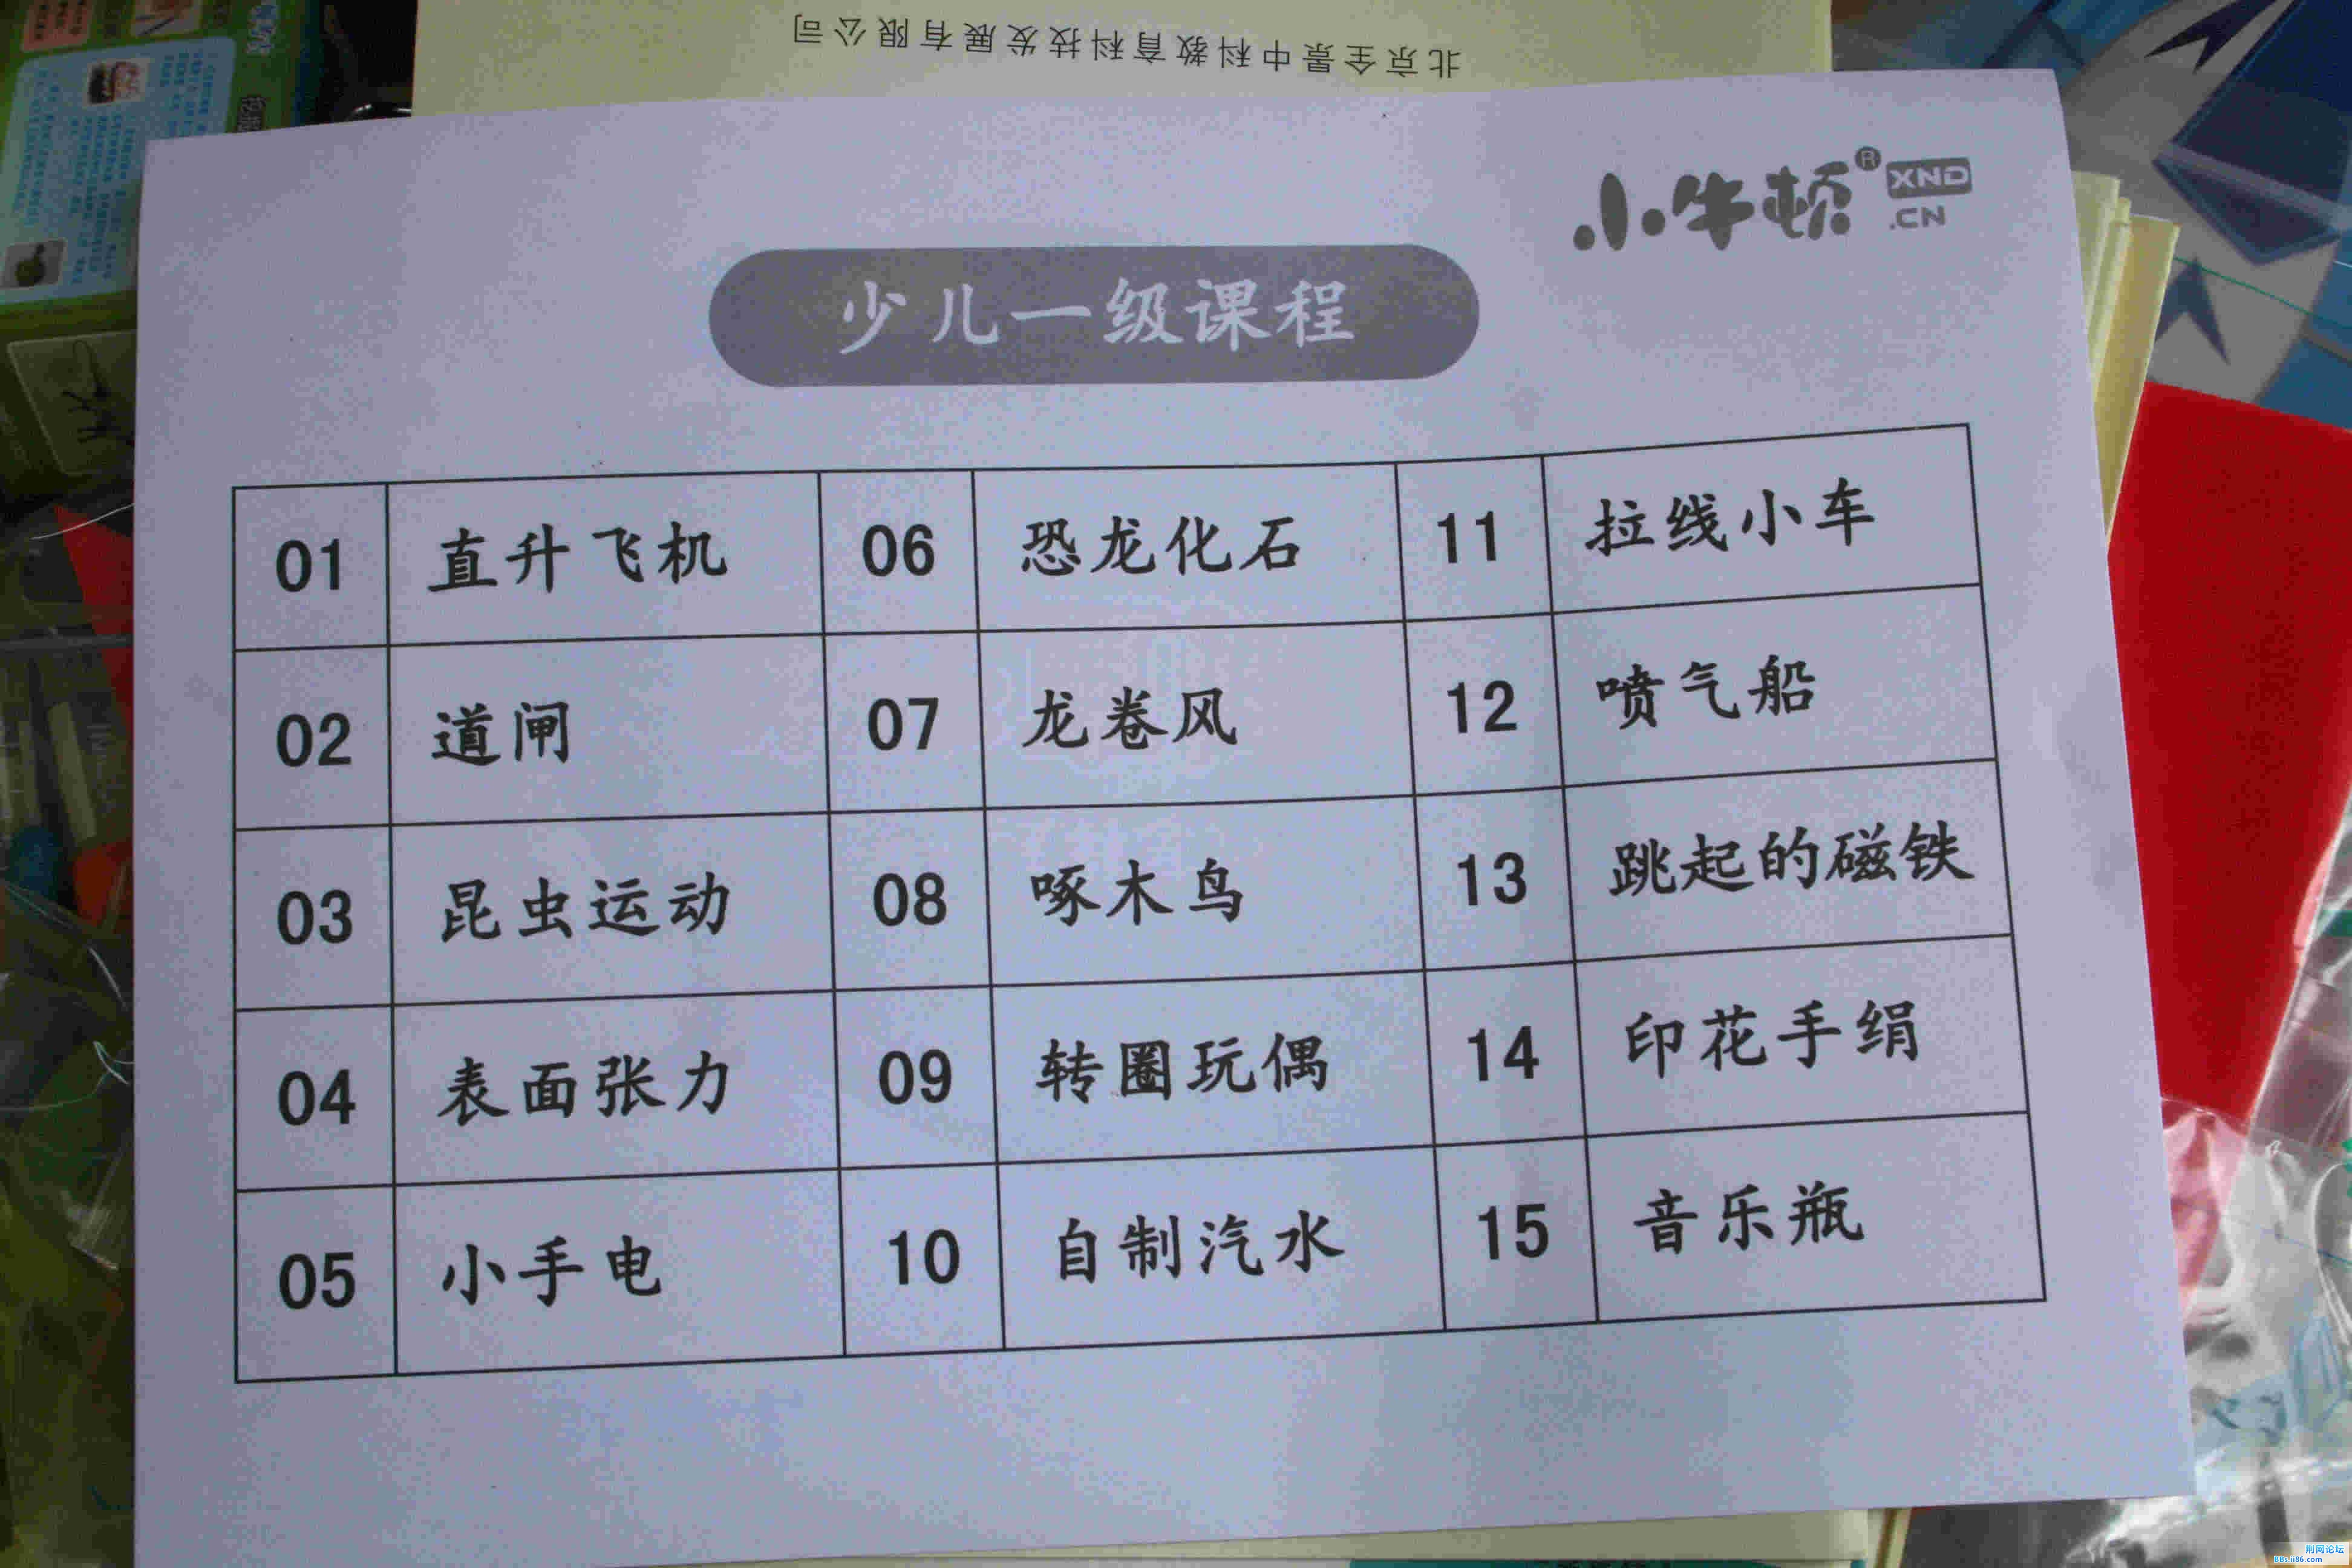 北京全景中科教育科技发展有限公司
小牛顿® XND
.CN
少儿一级课程
01 直升飞机 06 恐龙化石 11 拉线小车
02 道闸 07 龙卷风 12 喷气船
03 昆虫运动 08 啄木鸟 13 跳起的磁铁
04 表面张力 09 转圈玩偶 14 印花手绢
05 小手电 10 自制汽水 15 音乐瓶
荆网论坛